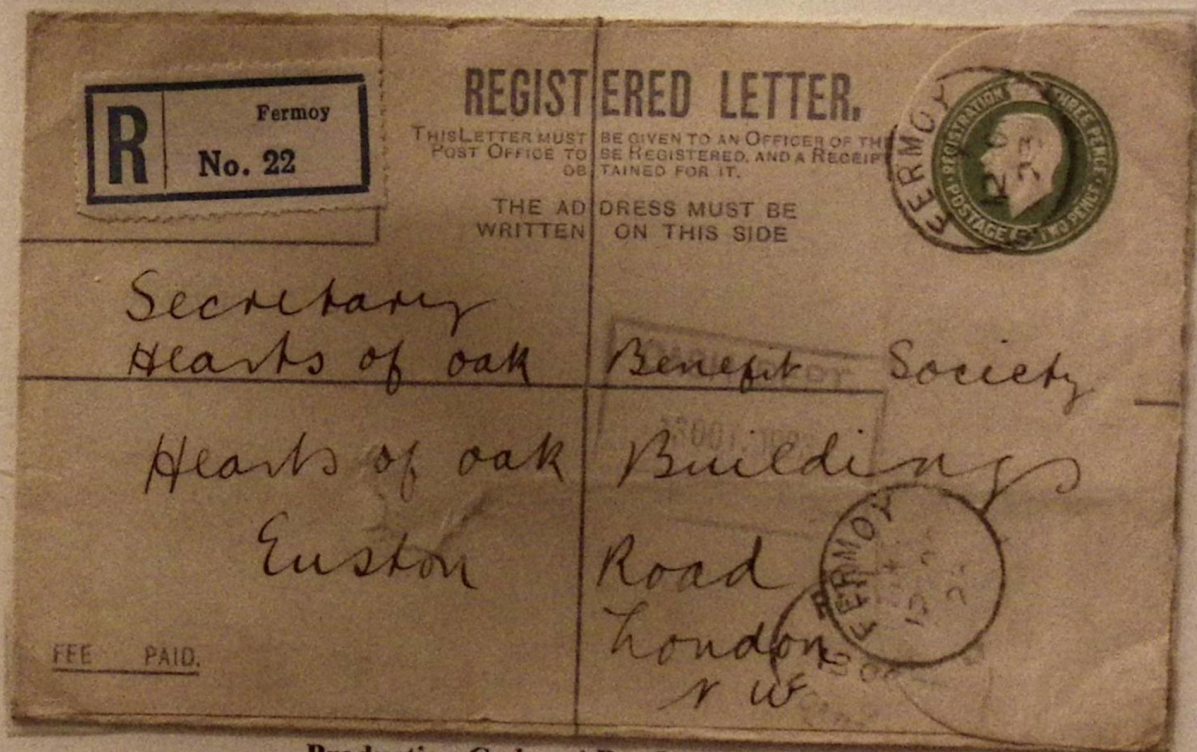 R
Fermoy
No. 22
REGISTERED LETTER.
THIS LETTER MUST BE GIVEN TO AN OFFICER OF THE
POST OFFICE TO BE REGISTERED, AND A RECEIPT
OBTAINED FOR IT.
THE ADDRESS MUST BE
WRITTEN ON THIS SIDE
FERMOY
REGISTRATION THREE PENCE
POSTAGE TWO PENCE
Secretary
Hearts of oak Benefit Society
Hearts of oak Buildings
Euston Road
London
N W
FERMOY
FEE PAID.